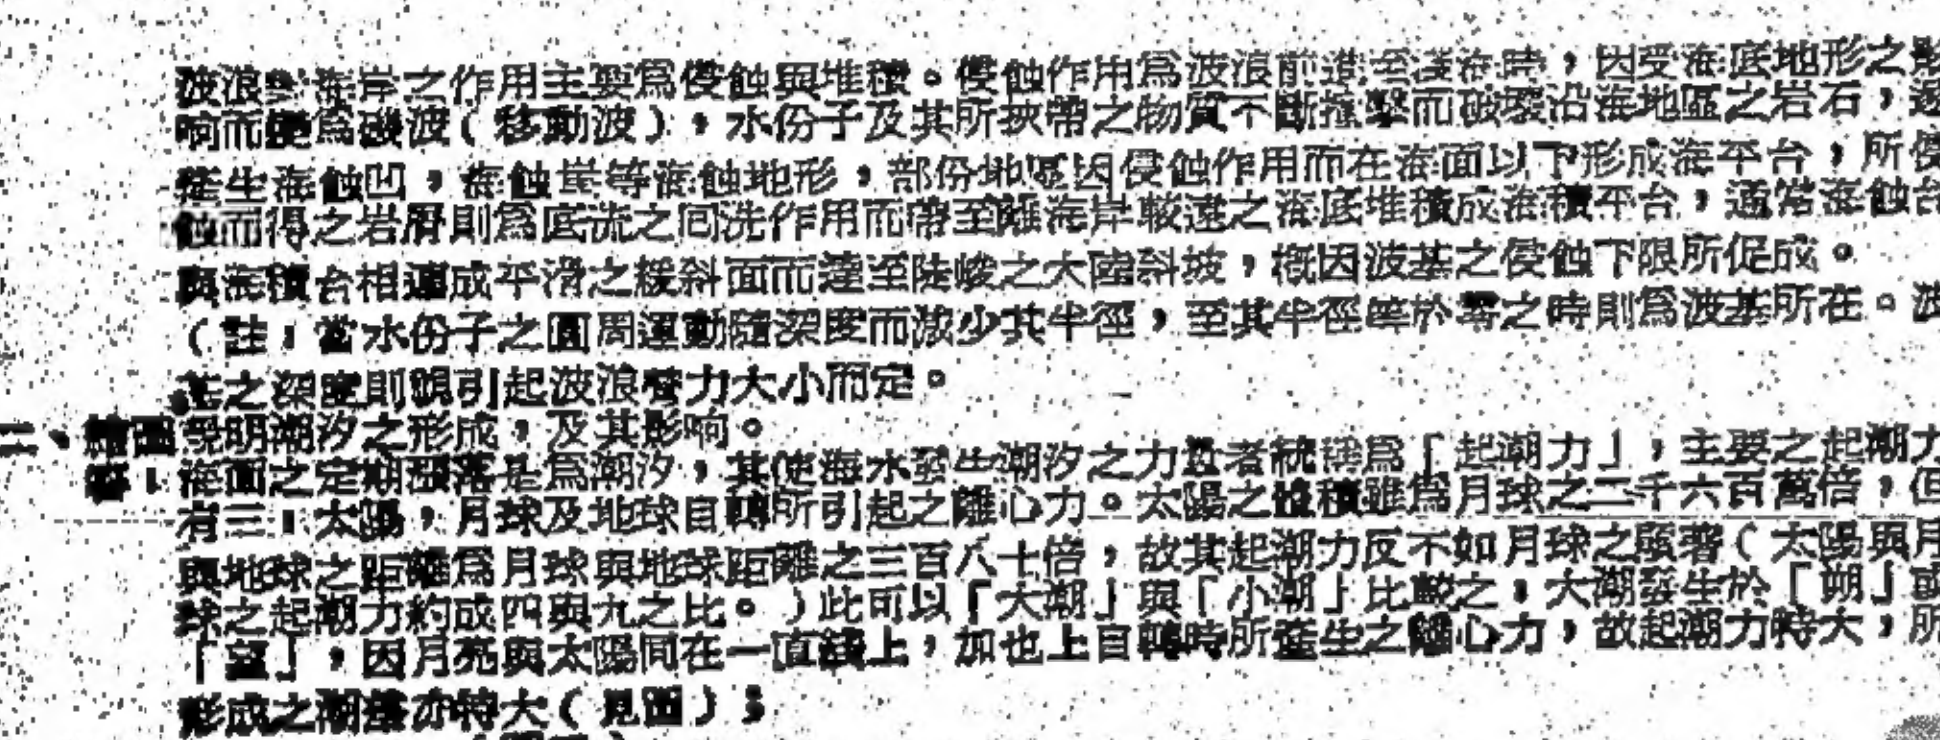 波浪對海岸之作用主要為侵蝕與堆積。侵蝕作用為波浪前進至淺海時，因受海底地形之影
响而變為磯波（移動波），水份子及其所挾帶之物質不斷撞擊而破壞沿海地區之岩石，遂
產生海蝕凹，海蝕崖等海蝕地形，部份地區因侵蝕作用而在海面以下形成海平台，所侵
蝕而得之岩屑則為底流之回洗作用而帶至離海岸較遠之海底堆積成海積平台，通常海蝕台
與海積台相連成平滑之緩斜面而達至陡峻之大陸斜坡，概因波基之侵蝕下限所促成。
（註：當水份子之圓周運動隨深度而減少其半徑，至其半徑等於零之時則為波基所在。波
基之深度則視引起波浪聲力大小而定。
二、繪圖說明潮汐之形成，及其影响。
答：海面之定期漲落是為潮汐，其使海水發生潮汐之力量者統稱為「起潮力」，主要之起潮力
有三：太陽，月球及地球自轉所引起之離心力。太陽之體積雖為月球之二千六百萬倍，但
與地球之距離為月球與地球距離之三百八十倍，故其起潮力反不如月球之顯著（太陽與月
球之起潮力約成四與九之比。）此可以「大潮」與「小潮」比較之，大潮發生於「朔」或
「望」，因月亮與太陽同在一直綫上，加也上自轉時所產生之離心力，故起潮力特大，所
形成之潮差亦特大（見圖）；